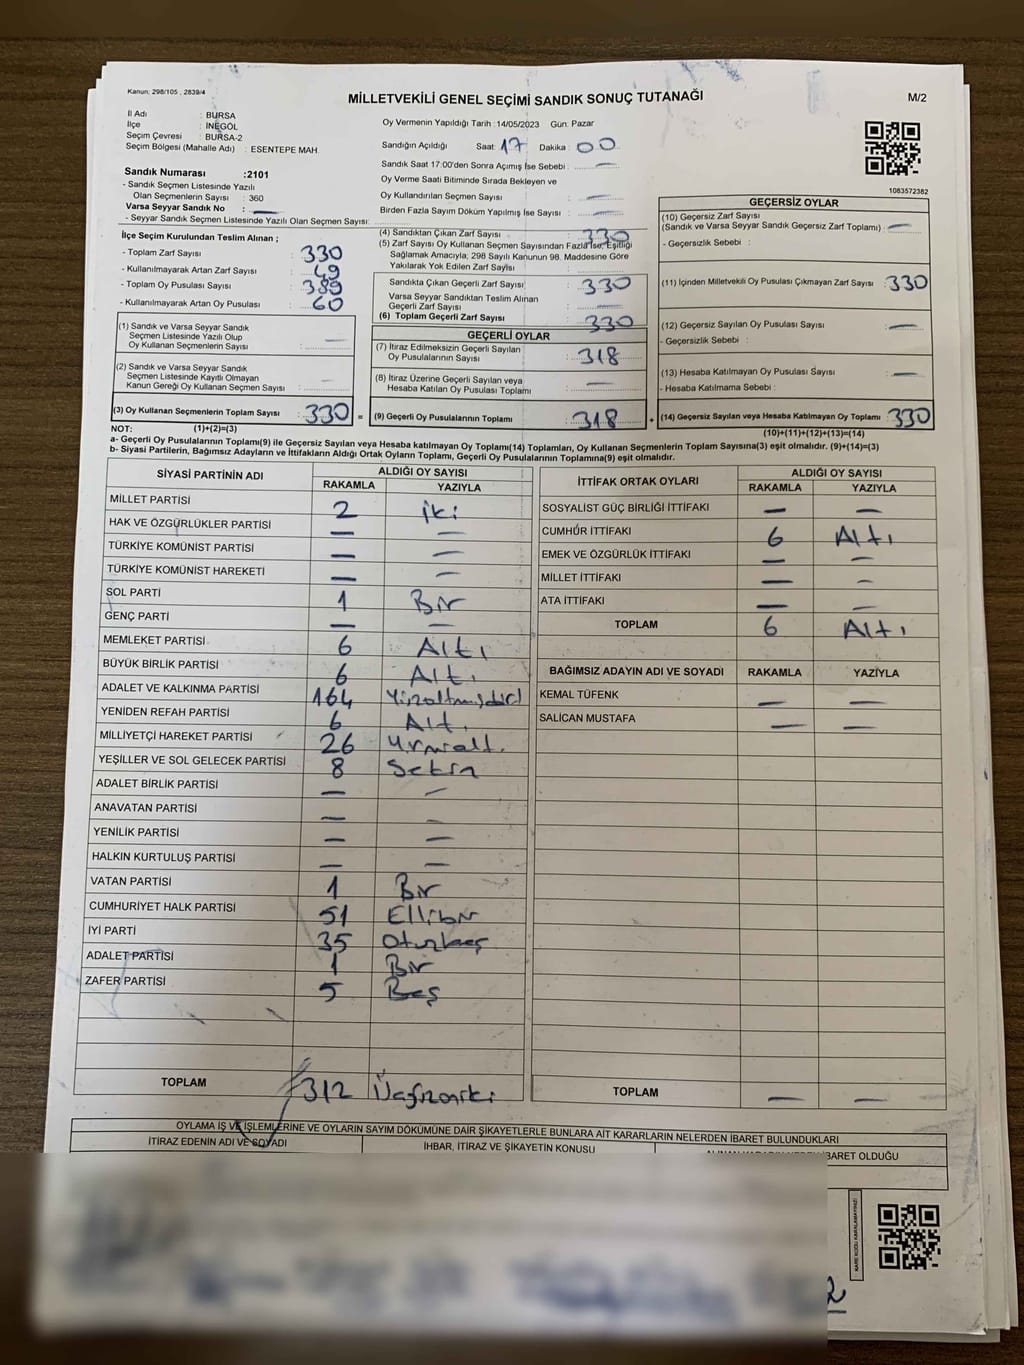 Kanun: 298/105 , 2839/4
MİLLETVEKİLİ GENEL SEÇİMİ SANDIK SONUÇ TUTANAĞI
M/2
İl Adı : BURSA
İlçe : İNEGÖL
Seçim Çevresi : BURSA-2
Seçim Bölgesi (Mahalle Adı) : ESENTEPE MAH.
Oy Vermenin Yapıldığı Tarih :14/05/2023 Gün: Pazar
Sandığın Açıldığı Saat: 17 Dakika : 00
Sandık Saat 17:00'den Sonra Açımış İse Sebebi : —
Oy Verme Saati Bitiminde Sırada Bekleyen ve
Oy Kullandırılan Seçmen Sayısı : —
Birden Fazla Sayım Döküm Yapılmış İse Sayısı : —
1083572382
Sandık Numarası :2101
- Sandık Seçmen Listesinde Yazılı
Olan Seçmenlerin Sayısı : 360
Varsa Seyyar Sandık No : —
- Seyyar Sandık Seçmen Listesinde Yazılı Olan Seçmen Sayısı:
İlçe Seçim Kurulundan Teslim Alınan ;
- Toplam Zarf Sayısı : 330
- Kullanılmayarak Artan Zarf Sayısı : 49
- Toplam Oy Pusulası Sayısı : 389
- Kullanılmayarak Artan Oy Pusulası : 60
(1) Sandık ve Varsa Seyyar Sandık
Seçmen Listesinde Yazılı Olup
Oy Kullanan Seçmenlerin Sayısı : —
(2) Sandık ve Varsa Seyyar Sandık
Seçmen Listesinde Kayıtlı Olmayan
Kanun Gereği Oy Kullanan Seçmen Sayısı : —
(3) Oy Kullanan Seçmenlerin Toplam Sayısı : 330 =
(4) Sandıktan Çıkan Zarf Sayısı : 330
(5) Zarf Sayısı Oy Kullanan Seçmen Sayısından Fazla İse, Eşitliği
Sağlamak Amacıyla; 298 Sayılı Kanunun 98. Maddesine Göre
Yakılarak Yok Edilen Zarf Sayısı :
Sandıkta Çıkan Geçerli Zarf Sayısı : 330
Varsa Seyyar Sandıktan Teslim Alınan
Geçerli Zarf Sayısı : —
(6) Toplam Geçerli Zarf Sayısı : 330
GEÇERLİ OYLAR
(7) İtiraz Edilmeksizin Geçerli Sayılan
Oy Pusulalarının Sayısı : 318
(8) İtiraz Üzerine Geçerli Sayılan veya
Hesaba Katılan Oy Pusulası Toplamı : —
(9) Geçerli Oy Pusulalarının Toplamı : 318 +
GEÇERSİZ OYLAR
(10) Geçersiz Zarf Sayısı
(Sandık ve Varsa Seyyar Sandık Geçersiz Zarf Toplamı) : —
- Geçersizlik Sebebi :
(11) İçinden Milletvekili Oy Pusulası Çıkmayan Zarf Sayısı : 330
(12) Geçersiz Sayılan Oy Pusulası Sayısı : —
- Geçersizlik Sebebi :
(13) Hesaba Katılmayan Oy Pusulası Sayısı : —
- Hesaba Katılmama Sebebi :
(14) Geçersiz Sayılan veya Hesaba Katılmayan Oy Toplamı : 330
NOT: (1)+(2)=(3)
(10)+(11)+(12)+(13)=(14)
a- Geçerli Oy Pusulalarının Toplamı(9) ile Geçersiz Sayılan veya Hesaba katılmayan Oy Toplamı(14) Toplamları, Oy Kullanan Seçmenlerin Toplam Sayısına(3) eşit olmalıdır. (9)+(14)=(3)
b- Siyasi Partilerin, Bağımsız Adayların ve İttifakların Aldığı Ortak Oyların Toplamı, Geçerli Oy Pusulalarının Toplamına(9) eşit olmalıdır.
SİYASİ PARTİNİN ADI
ALDIĞI OY SAYISI
RAKAMLA YAZIYLA
MİLLET PARTİSİ 2 iki
HAK VE ÖZGÜRLÜKLER PARTİSİ — —
TÜRKİYE KOMÜNİST PARTİSİ — —
TÜRKİYE KOMÜNİST HAREKETİ — —
SOL PARTİ 1 Bir
GENÇ PARTİ — —
MEMLEKET PARTİSİ 6 Altı
BÜYÜK BİRLİK PARTİSİ 6 Altı
ADALET VE KALKINMA PARTİSİ 164 Yüzaltmışdört
YENİDEN REFAH PARTİSİ 6 Altı
MİLLİYETÇİ HAREKET PARTİSİ 26 Yirmialtı
YEŞİLLER VE SOL GELECEK PARTİSİ 8 Sekiz
ADALET BİRLİK PARTİSİ — —
ANAVATAN PARTİSİ — —
YENİLİK PARTİSİ — —
HALKIN KURTULUŞ PARTİSİ — —
VATAN PARTİSİ 1 Bir
CUMHURİYET HALK PARTİSİ 51 Ellibir
İYİ PARTİ 35 Otuzbeş
ADALET PARTİSİ 1 Bir
ZAFER PARTİSİ 5 Beş
TOPLAM 312 Üçyüzoniki
İTTİFAK ORTAK OYLARI
ALDIĞI OY SAYISI
RAKAMLA YAZIYLA
SOSYALİST GÜÇ BİRLİĞİ İTTİFAKI — —
CUMHUR İTTİFAKI 6 Altı
EMEK VE ÖZGÜRLÜK İTTİFAKI — —
MİLLET İTTİFAKI — —
ATA İTTİFAKI — —
TOPLAM 6 Altı
BAĞIMSIZ ADAYIN ADI VE SOYADI RAKAMLA YAZIYLA
KEMAL TÜFENK — —
SALİCAN MUSTAFA — —
TOPLAM — —
OYLAMA İŞ VE İŞLEMLERİNE VE OYLARIN SAYIM DÖKÜMÜNE DAİR ŞİKAYETLERLE BUNLARA AİT KARARLARIN NELERDEN İBARET BULUNDUKLARI
İTİRAZ EDENİN ADI VE SOYADI
İHBAR, İTİRAZ VE ŞİKAYETİN KONUSU
İBARET OLDUĞU
KARE KODU KARALAMAYINIZ!